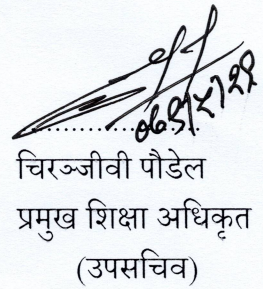 चिरञ्जीवी पौडेल
प्रमुख शिक्षा अधिकृत
(उपसचिव)